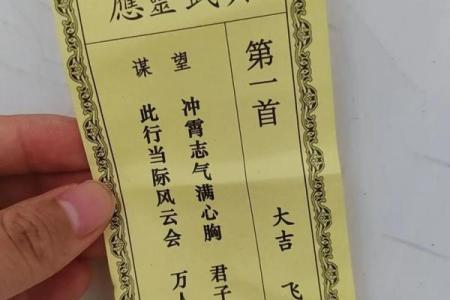 應靈武
第一首 大吉 飞
望 冲霄志气满心胸 君子
谋 此行当际风云会 万人